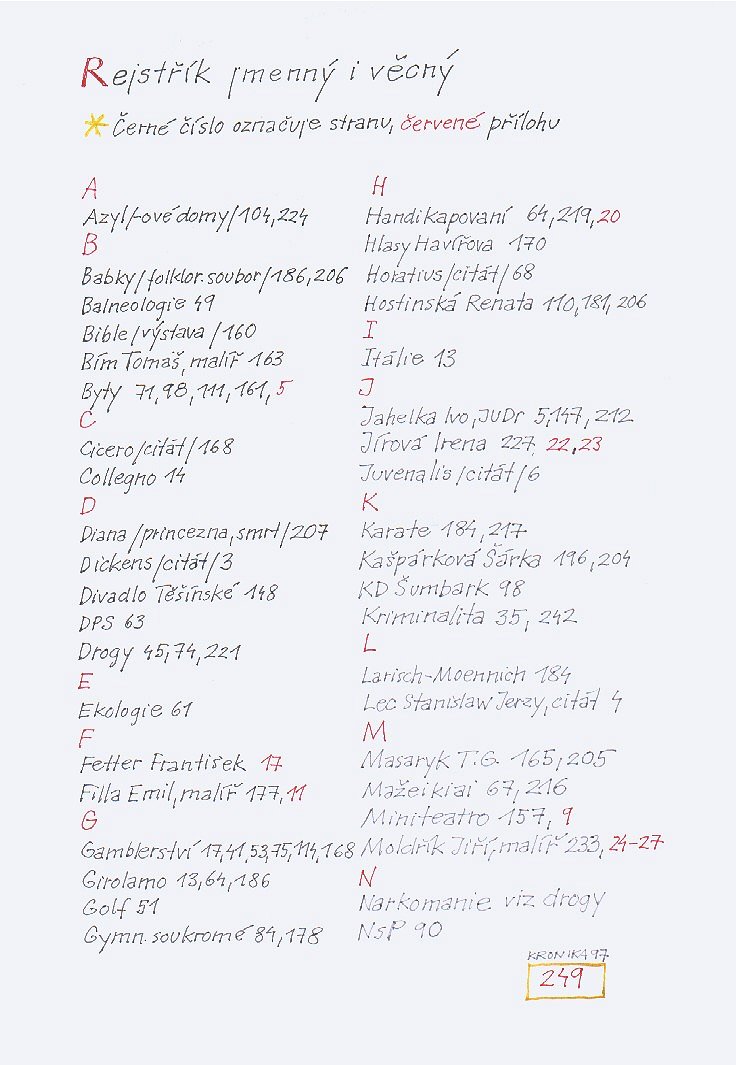 Rejstřík jmenný i věcný
* Černé číslo označuje stranu, červené přílohu
A
Azyl/-ové domy/104,224
B
Babky/folklor.soubor/186,206
Balneologie 49
Bible/výstava/160
Bím Tomáš, malíř 163
Byty 71,98,111,161,5
C
Cicero/citát/168
Collegno 14
D
Diana/princezna,smrt/207
Dickens/citát/3
Divadlo Těšínské 148
DPS 63
Drogy 45,74,221
E
Ekologie 61
F
Fetter František 17
Filla Emil, malíř 177,11
G
Gamblerství 17,41,53,75,114,168
Girolamo 13,64,186
Golf 51
Gymn. soukromé 84,178
H
Handikapovaní 64,219,20
Hlasy Havířova 170
Horatius/citát/68
Hostinská Renata 110,181,206
I
Itálie 13
J
Jahelka Ivo, JUDr 5,147,212
Jírová Irena 227, 22,23
Juvenalis/citát/6
K
Karate 184,217
Kašpárková Šárka 196,204
KD Šumbark 98
Kriminalita 35, 242
L
Larisch-Moennich 184
Lec Stanislaw Jerzy, citát 4
M
Masaryk T.G. 165,205
Mažeikiai 67,216
Miniteatro 157, 9
Moldřík Jiří, malíř 233, 24-27
N
Narkomanie viz drogy
NsP 90
KRONIKA 97
249